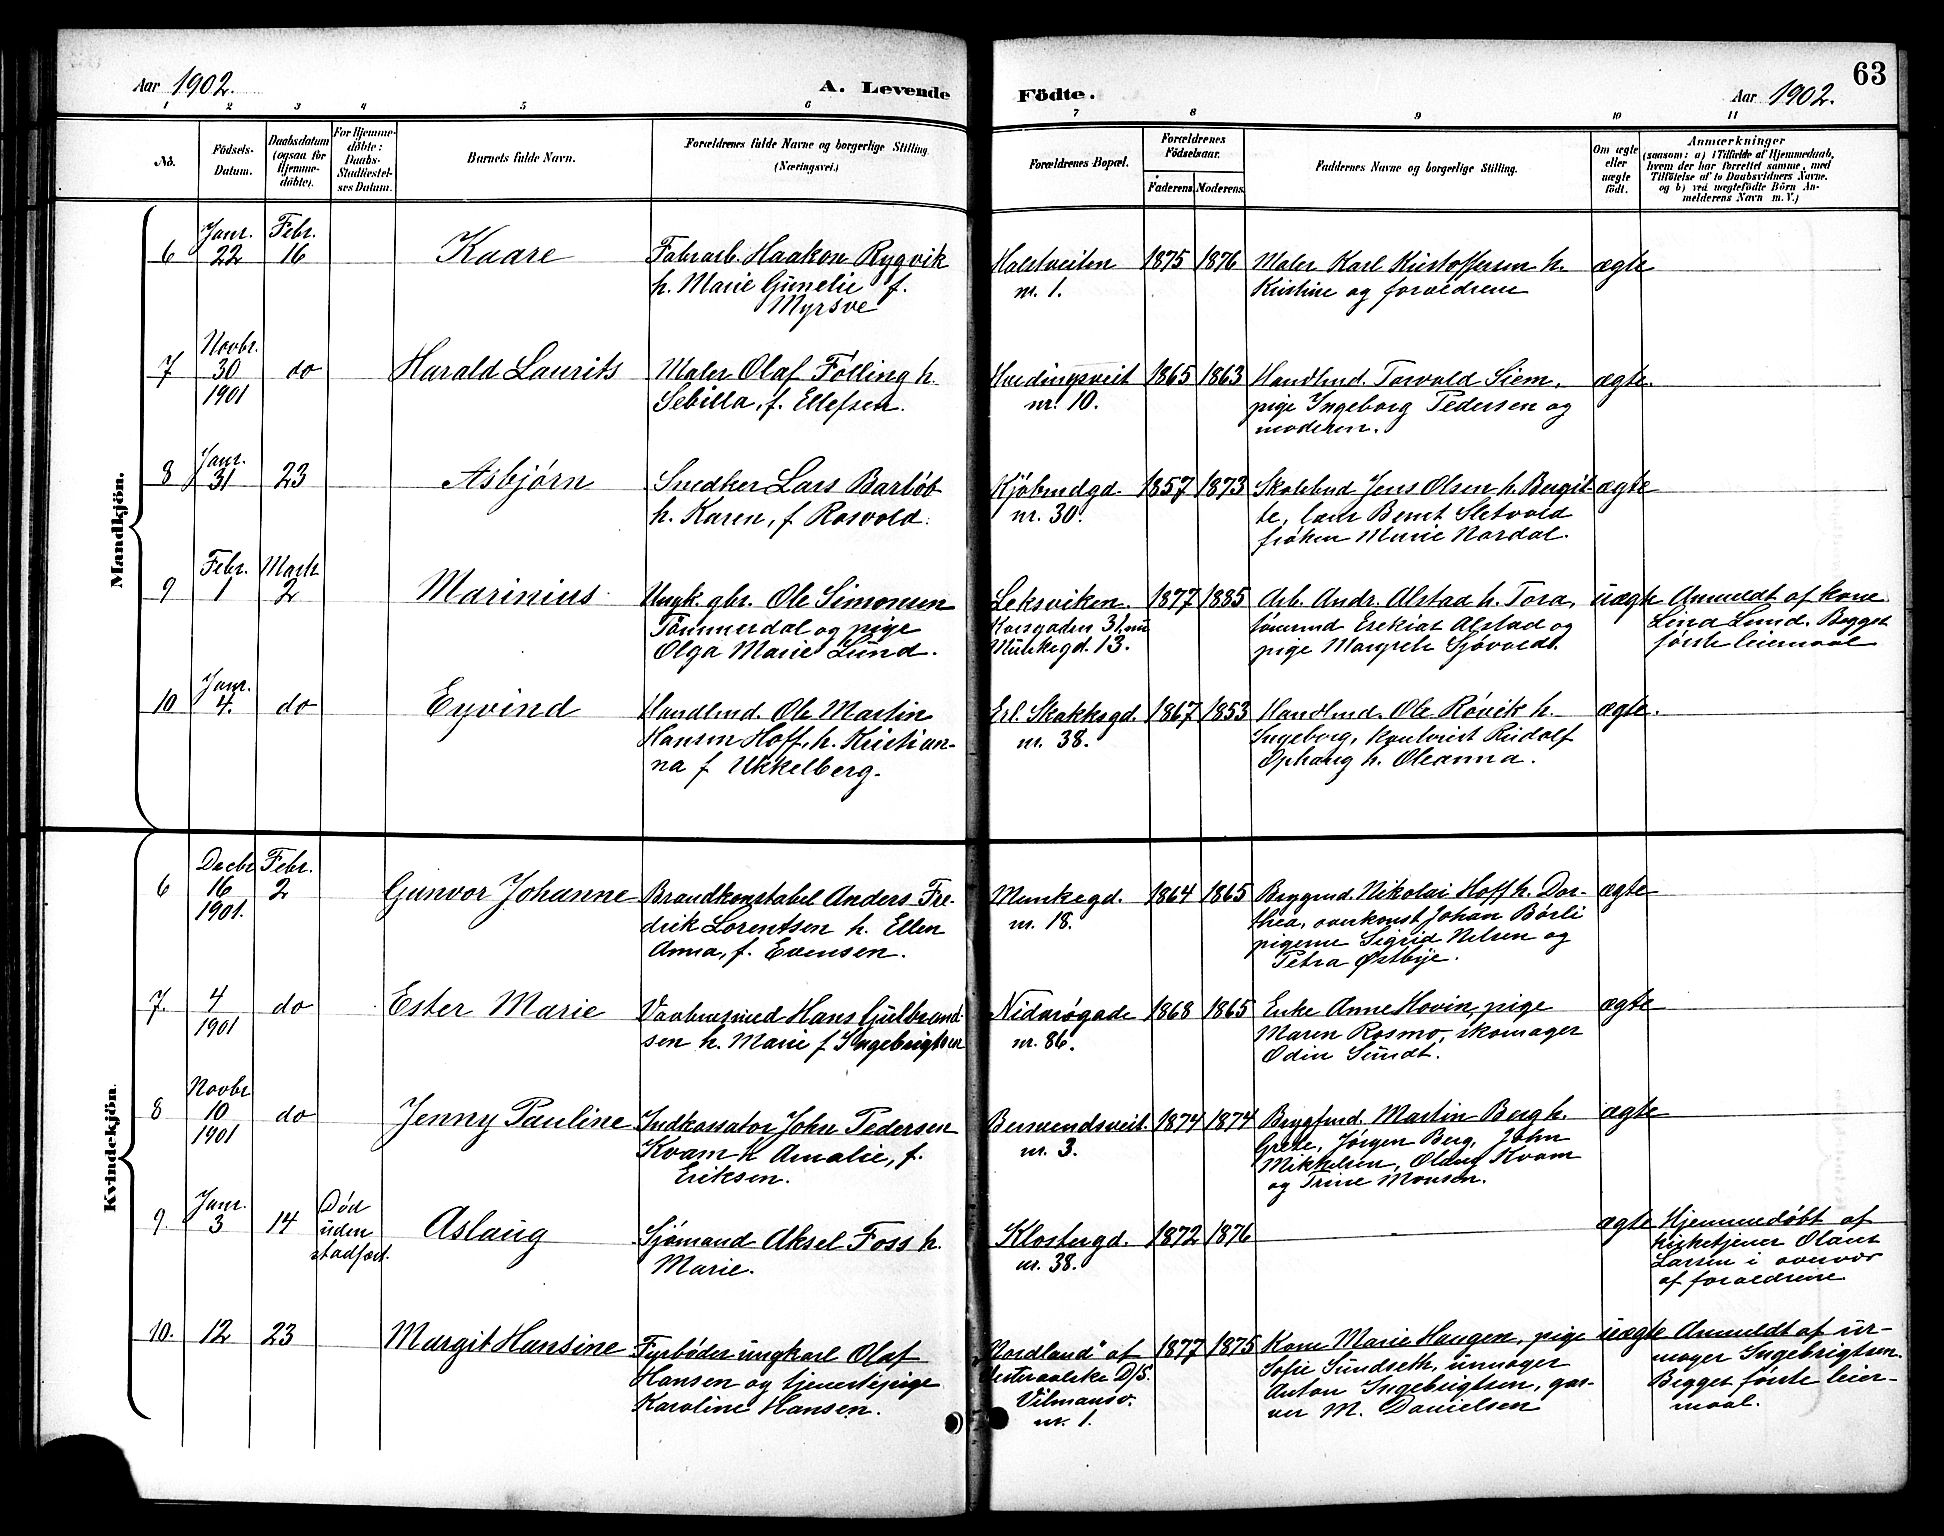 Aar 1902.
A. Levende Födte.
Aar 1902.
63
1 2 3 4 5 6 7 8 9 10 11
No.
Födsels-
Datum.
Daabsdatum
(ogsaa for
Hjemme-
döbte).
For Hjemme-
döbte:
Daabs-
Stadfæstel-
ses Datum.
Barnets fulde Navn.
Forældrenes fulde Navne og borgerlige Stilling
(Næringsvei.)
Forældrenes Bopæl.
Forældrenes
Födselsaar.
Faderens. Moderens.
Faddernes Navne og borgerlige Stilling.
Om ægte
eller
uægte
födt.
Anmærkninger
(saasom: a) i Tilfælde af Hjemmedaab,
hvem der har forrettet samme, med
Tilföielse af to Daabsvidners Navne.
og b) ved uægtefödte Börn An-
melderens Navn m. V.)
Mandkjön.
6
Janr.
22
Febr.
16
Kaare
Fabrarb. Haakon Rygvik
h. Marie Gunelie f.
Myrsve
nr. 1.
1875 1876
Maler Karl Kristoffersen h.
Kristine og forældrene
ægte
7
Novbr.
30
1901
do
Harald Laurits
Maler Olaf Fölling h.
Sebilla, f. Ellefsen.
Hvedingsveit
nr. 10.
1865 1863
Handlmd. Torvald Siem,
pige Ingeborg Pedersen og
moderen.
ægte.
8
Janr.
31
23
Asbjørn
Snedker Lars Barlöb
h. Karen, f. Rosvold.
Kjöbmdgd.
nr. 30.
1857 1873
Skolebud Jens Olsen h. Bergit
te, Bernt Sletvold
fröken Marie Nordal.
ægte
9
Febr.
1
Marts
2
Marinius
Ungk. gbr. Ole Simonsen
Tömmerdal og pige
Olga Marie Lund.
Leksviken.
Korsgaden 31, nu
Munkegd. 13.
1877 1885
Arb. Andr. Alstad h. Tora,
Esekias Alstad og
pige Margrete Sjövold.
uægte
Anmeldt af kone
Lina Lund. Begges
förste leiermaal
10
Janr.
4.
do
Eyvind
Handlmd. Ole Martin
Hansen Hoff, h. Kristian-
na f. Ukkelberg.
Erl. Skakksgd.
nr. 38.
1867 1853
Handlmd. Ole Rövik h.
Ingeborg, Rudolf
Ophaug h. Oleanna.
ægte.
Kvindekjön
6
Decbr
16
1901.
Febr.
2
Gunvor Johanne
Brandkonstabel Anders Fre-
drik Lorentsen h. Ellen
Anna, f. Evensen.
Munkegd.
nr. 18.
1864 1865
Bryggmd. Nikolai Hoff h. Dor-
thea, overkonst Johan Börli
pigerne Sigrid Nilsen og
Petra Østbye.
ægte
7.
4
1901
do
Ester Marie
Vaabnesmed Hans Gulbrand-
sen h. Marie f. Ingebrigtsen
Nidarögade
nr. 86.
1868 1865
Enke Anne Hovin, pige
Maren Rosmo, skomager
Odin Sundt.
ægte
8
Novbr
10
1901
do
Jenny Pauline
Indkassator John Pedersen
Kvam h Amalie, f.
Eriksen.
Bersvendsveit
nr. 3.
1874 1874
Bryggmd. Martin Berg h.
Grete, Jörgen Berg, John
Mikkelsen, Olaug Kvam
og Trine Monsen.
ægte
9.
Janr.
3
14
Död
uden
stadfæst.
Aslaug
Sjömand Aksel Foss h.
Marie.
Klostergd.
nr. 38.
1872 1876
ægte
Hjemmedöbt af
kirketjener Olaus
Larsen i overvær
af forældrene
10.
12
23
Margit Hansine
Fyrböder ungkarl Olaf
Hansen og tjenestepige
Karoline Hansen.
"Nordland" af
Vesteraalske D/S.
Vilmansv.
nr. 1.
1877 1875
Kone Marie Haugen, pige
Sofie Sundseth, urmager
Anton Ingebrigtsen, gar-
ver M. Danielsen
uægte
Anmeldt af ur-
mager Ingebrigtsen.
Begges förste leier-
maal.